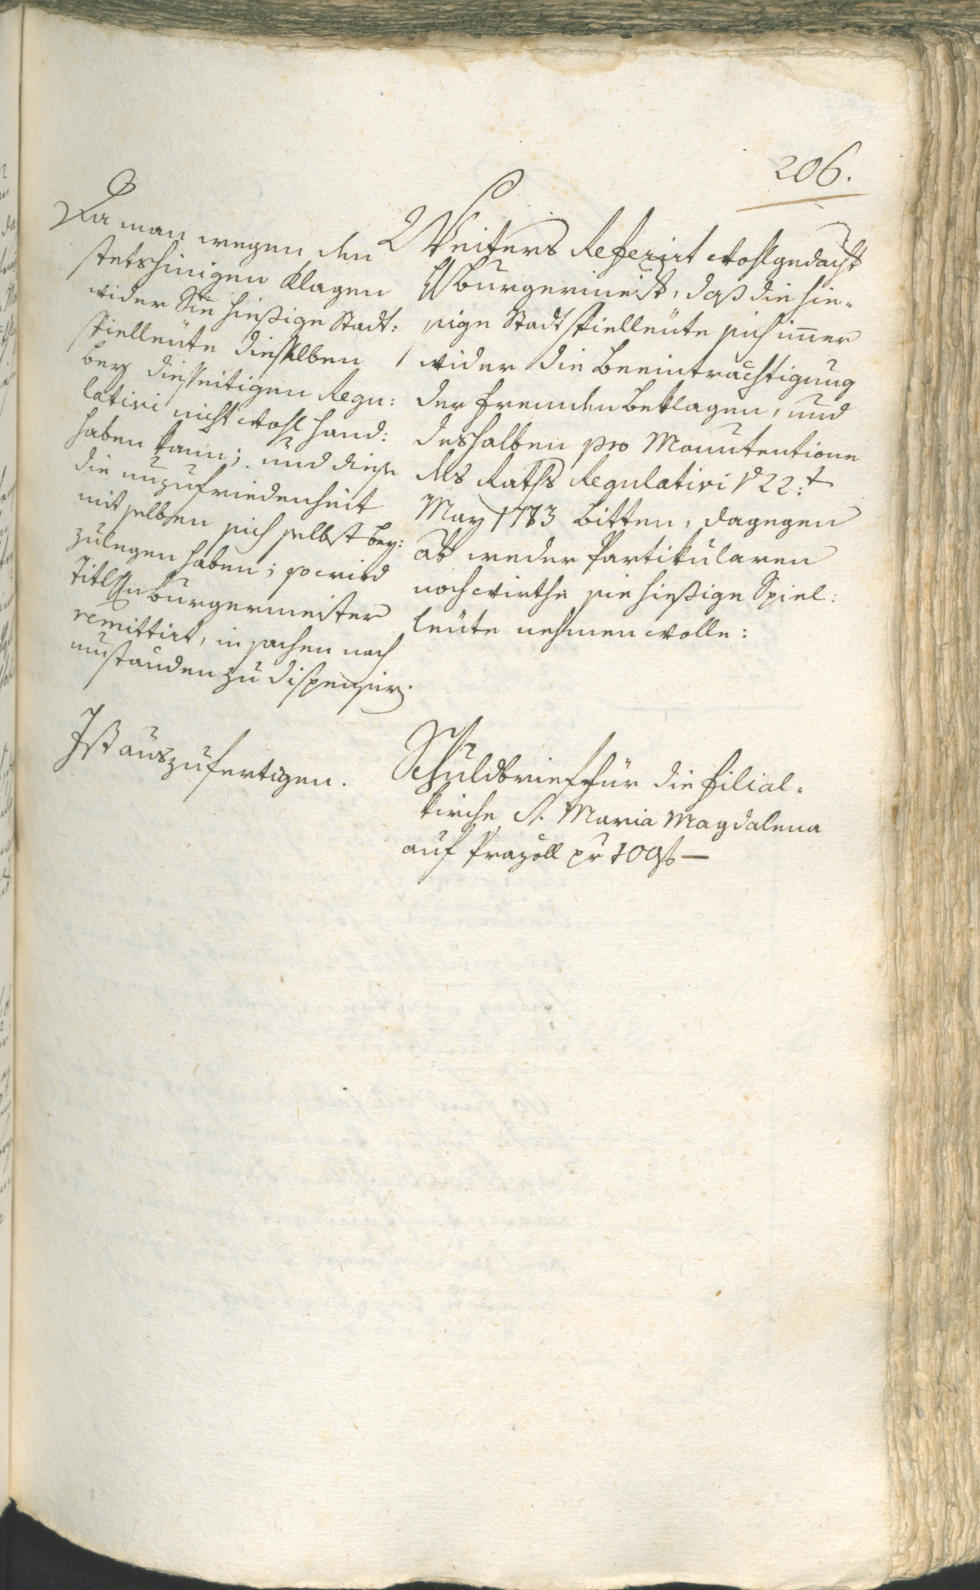 206.
Da man wegen den
stetshinigen Klagen
wider die hießige Stadt:
spielleüte dieselben
bey diesseitigen Regu:
lativi nicht wohl hand:
haben kann; und diese
die unzufriedenheit
mit selben sich selbst bey:
zulegen haben; so wird
Titl H. burgermeister
remittirt, in sachen nach
umständen zu dispensir.
Weiters Referirt wohlgedacht
H burgermeist. daß die hie=
sige Stadtspielleüte sich im̄er
wider die Beeinträchtigung
der fremden beklagen, und
deshalben pro Manutentione
des Raths Regulativi 22.t
May 1783 bitten, dagegen
ob weder Partikularen
noch wirthe sie hießige Spiel:
leüte nehmen wolle:
Ist auszufertigen.
Schuldbrief für die filial=
kirche S. Maria Magdalena
auf Prazöll pr 100 f —